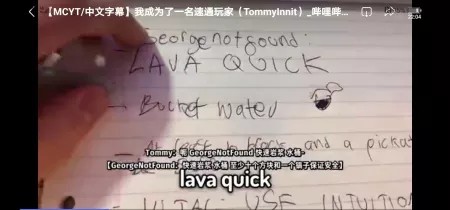 【MCYT/中文字幕】我成为了一名速通玩家（TommyInnit）_哔哩哔…
22:04
Georgenotfound:
LAVA QUICK
- Bucket water
- At left 10 blocks and a pickax
Tommy：呃 GeorgeNotFound 快速岩浆 水桶-
【GeorgeNotFound：快速岩浆 水桶 至少十个方块和一个镐子保证安全】
lava quick
- VITAL: USE INTUITION